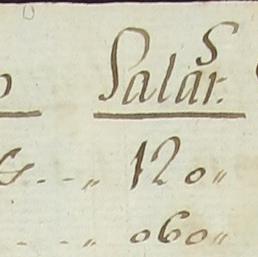 Salar.s
120,,
060,,